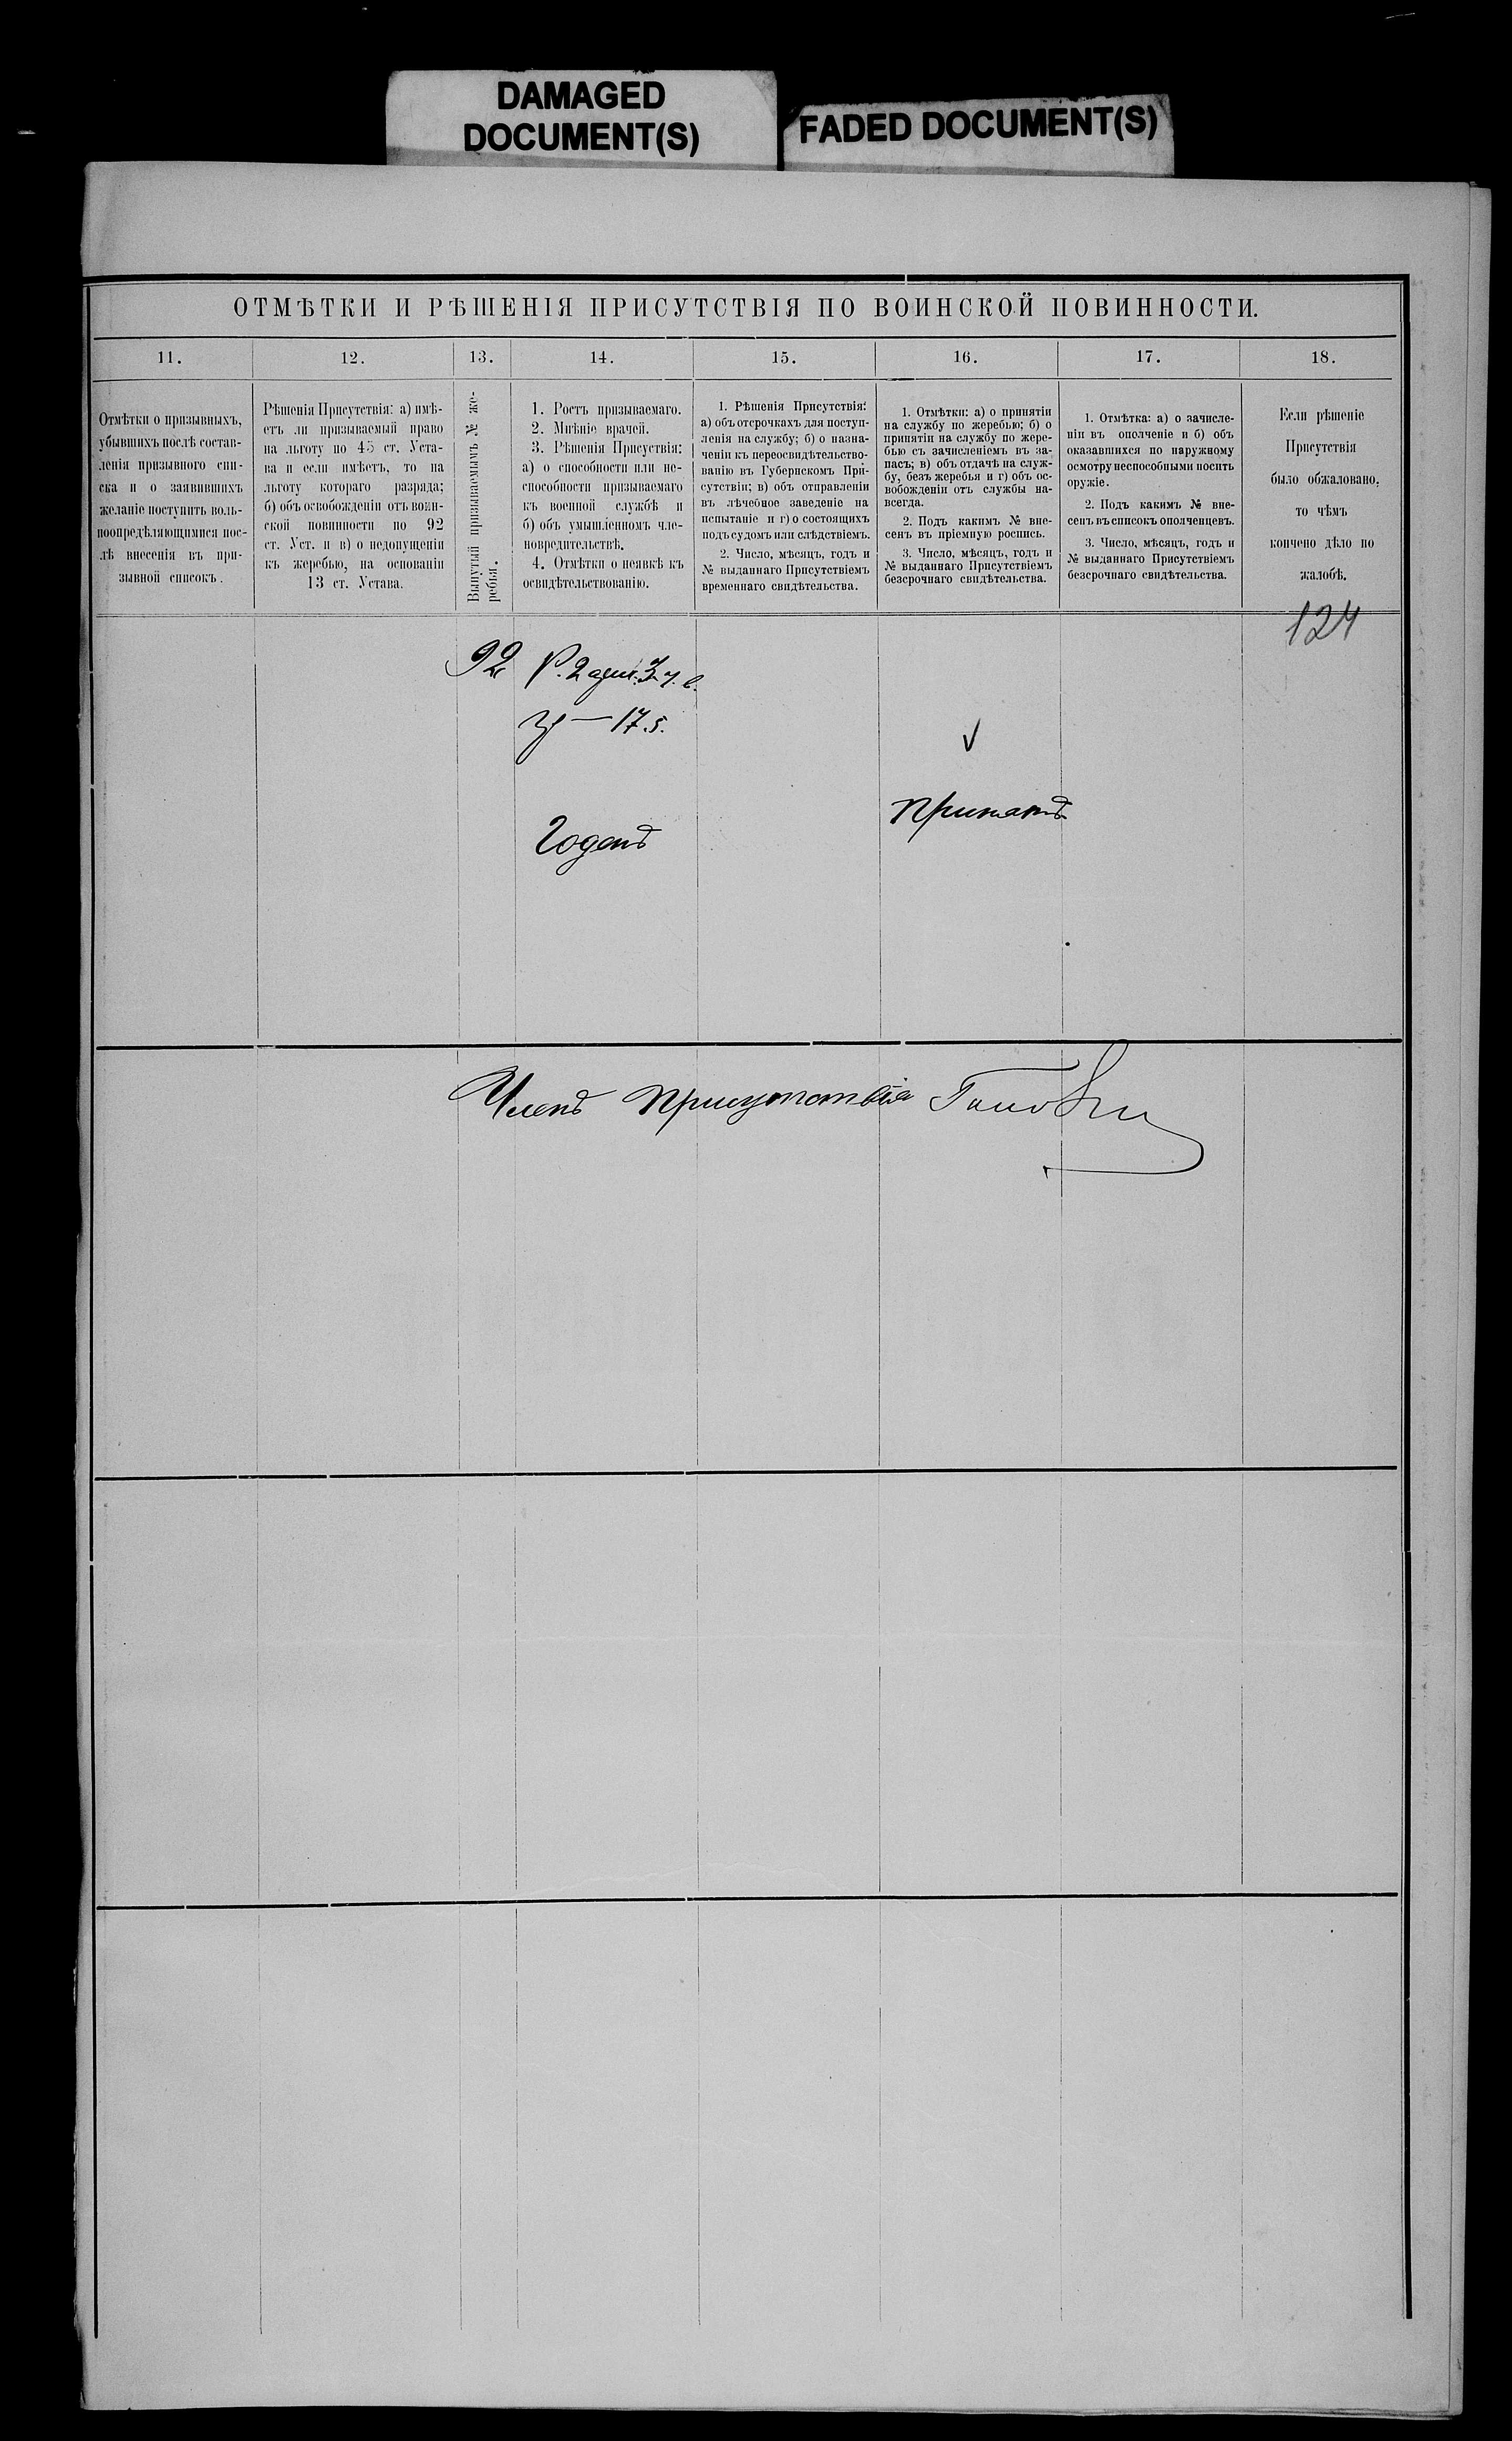 DAMAGED
DOCUMENT(S)
FADED DOCUMENT(S)
ОТМѢТКИ И РѢШЕНІЯ ПРИСУТСТВІЯ ПО ВОИНСКОЙ ПОВИННОСТИ.
11.
12.
13.
14.
15.
16.
17.
18.
Отмѣтки о призывныхъ,
убывшихъ послѣ состав-
ленія призывного спи-
ска и о заявившихъ
желаніе поступить воль-
ноопредѣляющимися пос-
лѣ внесенія въ при-
зывной списокъ.
Рѣшенія Присутствія: а) имѣ-
етъ ли призываемый право
на льготу по 45 ст. Уста-
ва и если имѣетъ, то на
льготу котораго разряда;
б) объ освобожденіи отъ воин-
ской повинности по 92
ст. Уст. и в) о недопущеніи
къ жеребью, на основаніи
13 ст. Устава.
Вынутый призываемымъ № же-
ребья.
1. Ростъ призываемаго.
2. Мнѣніе врачей.
3. Рѣшенія Присуствія:
а) о способности или не-
способности призываемаго
къ военной службѣ и
б) объ умышленномъ чле-
новредительствѣ.
4. Отмѣтки о неявкѣ къ
освидѣтельствованію.
1. Рѣшенія Присутствія:
а) объ отсрочкахъ для поступ-
ленія на службу; б) о назна-
ченіи къ переосвидѣтельство-
ванію въ Губернскомъ При-
сутствіи; в) объ отправленіи
въ лѣчебное заведеніе на
испытаніе и г) о состоящихъ
подъ судомъ или слѣдствіемъ.
2. Число, мѣсяцъ, годъ и
№ выданнаго Присутствіемъ
временнаго свидѣтельства.
1. Отмѣтки: а) о принятіи
на службу по жеребью; б) о
принятіи на службу по жере-
бью съ зачисленіемъ въ за-
пасъ; в) объ отдачѣ на служ-
бу, безъ жеребья и г) объ ос-
вобожденіи отъ службы на-
всегда.
2. Подъ какимъ № вне-
сенъ въ пріемную роспись.
3. Число, мѣсяцъ, годъ и
№ выданнаго Присутствіемъ
безсрочнаго свидѣтельства.
1. Отмѣтка: а) о зачисле-
ніи въ ополченіе и б) объ
оказавшихся по наружному
осмотру неспособными носить
оружіе.
2. Подъ какимъ № вне-
сенъ въ списокъ ополченцевъ.
3. Число, мѣсяцъ, годъ и
№ выданнаго Присутствіемъ
безсрочнаго свидѣтельства.
Если рѣшеніе
Присутствія
было обжаловано,
то чѣмъ
кончено дѣло по
жалобѣ.
124
92
Р. 2 арш. 3 ч. в.
17.5.
Годенъ
Принятъ
Членъ Присутствія